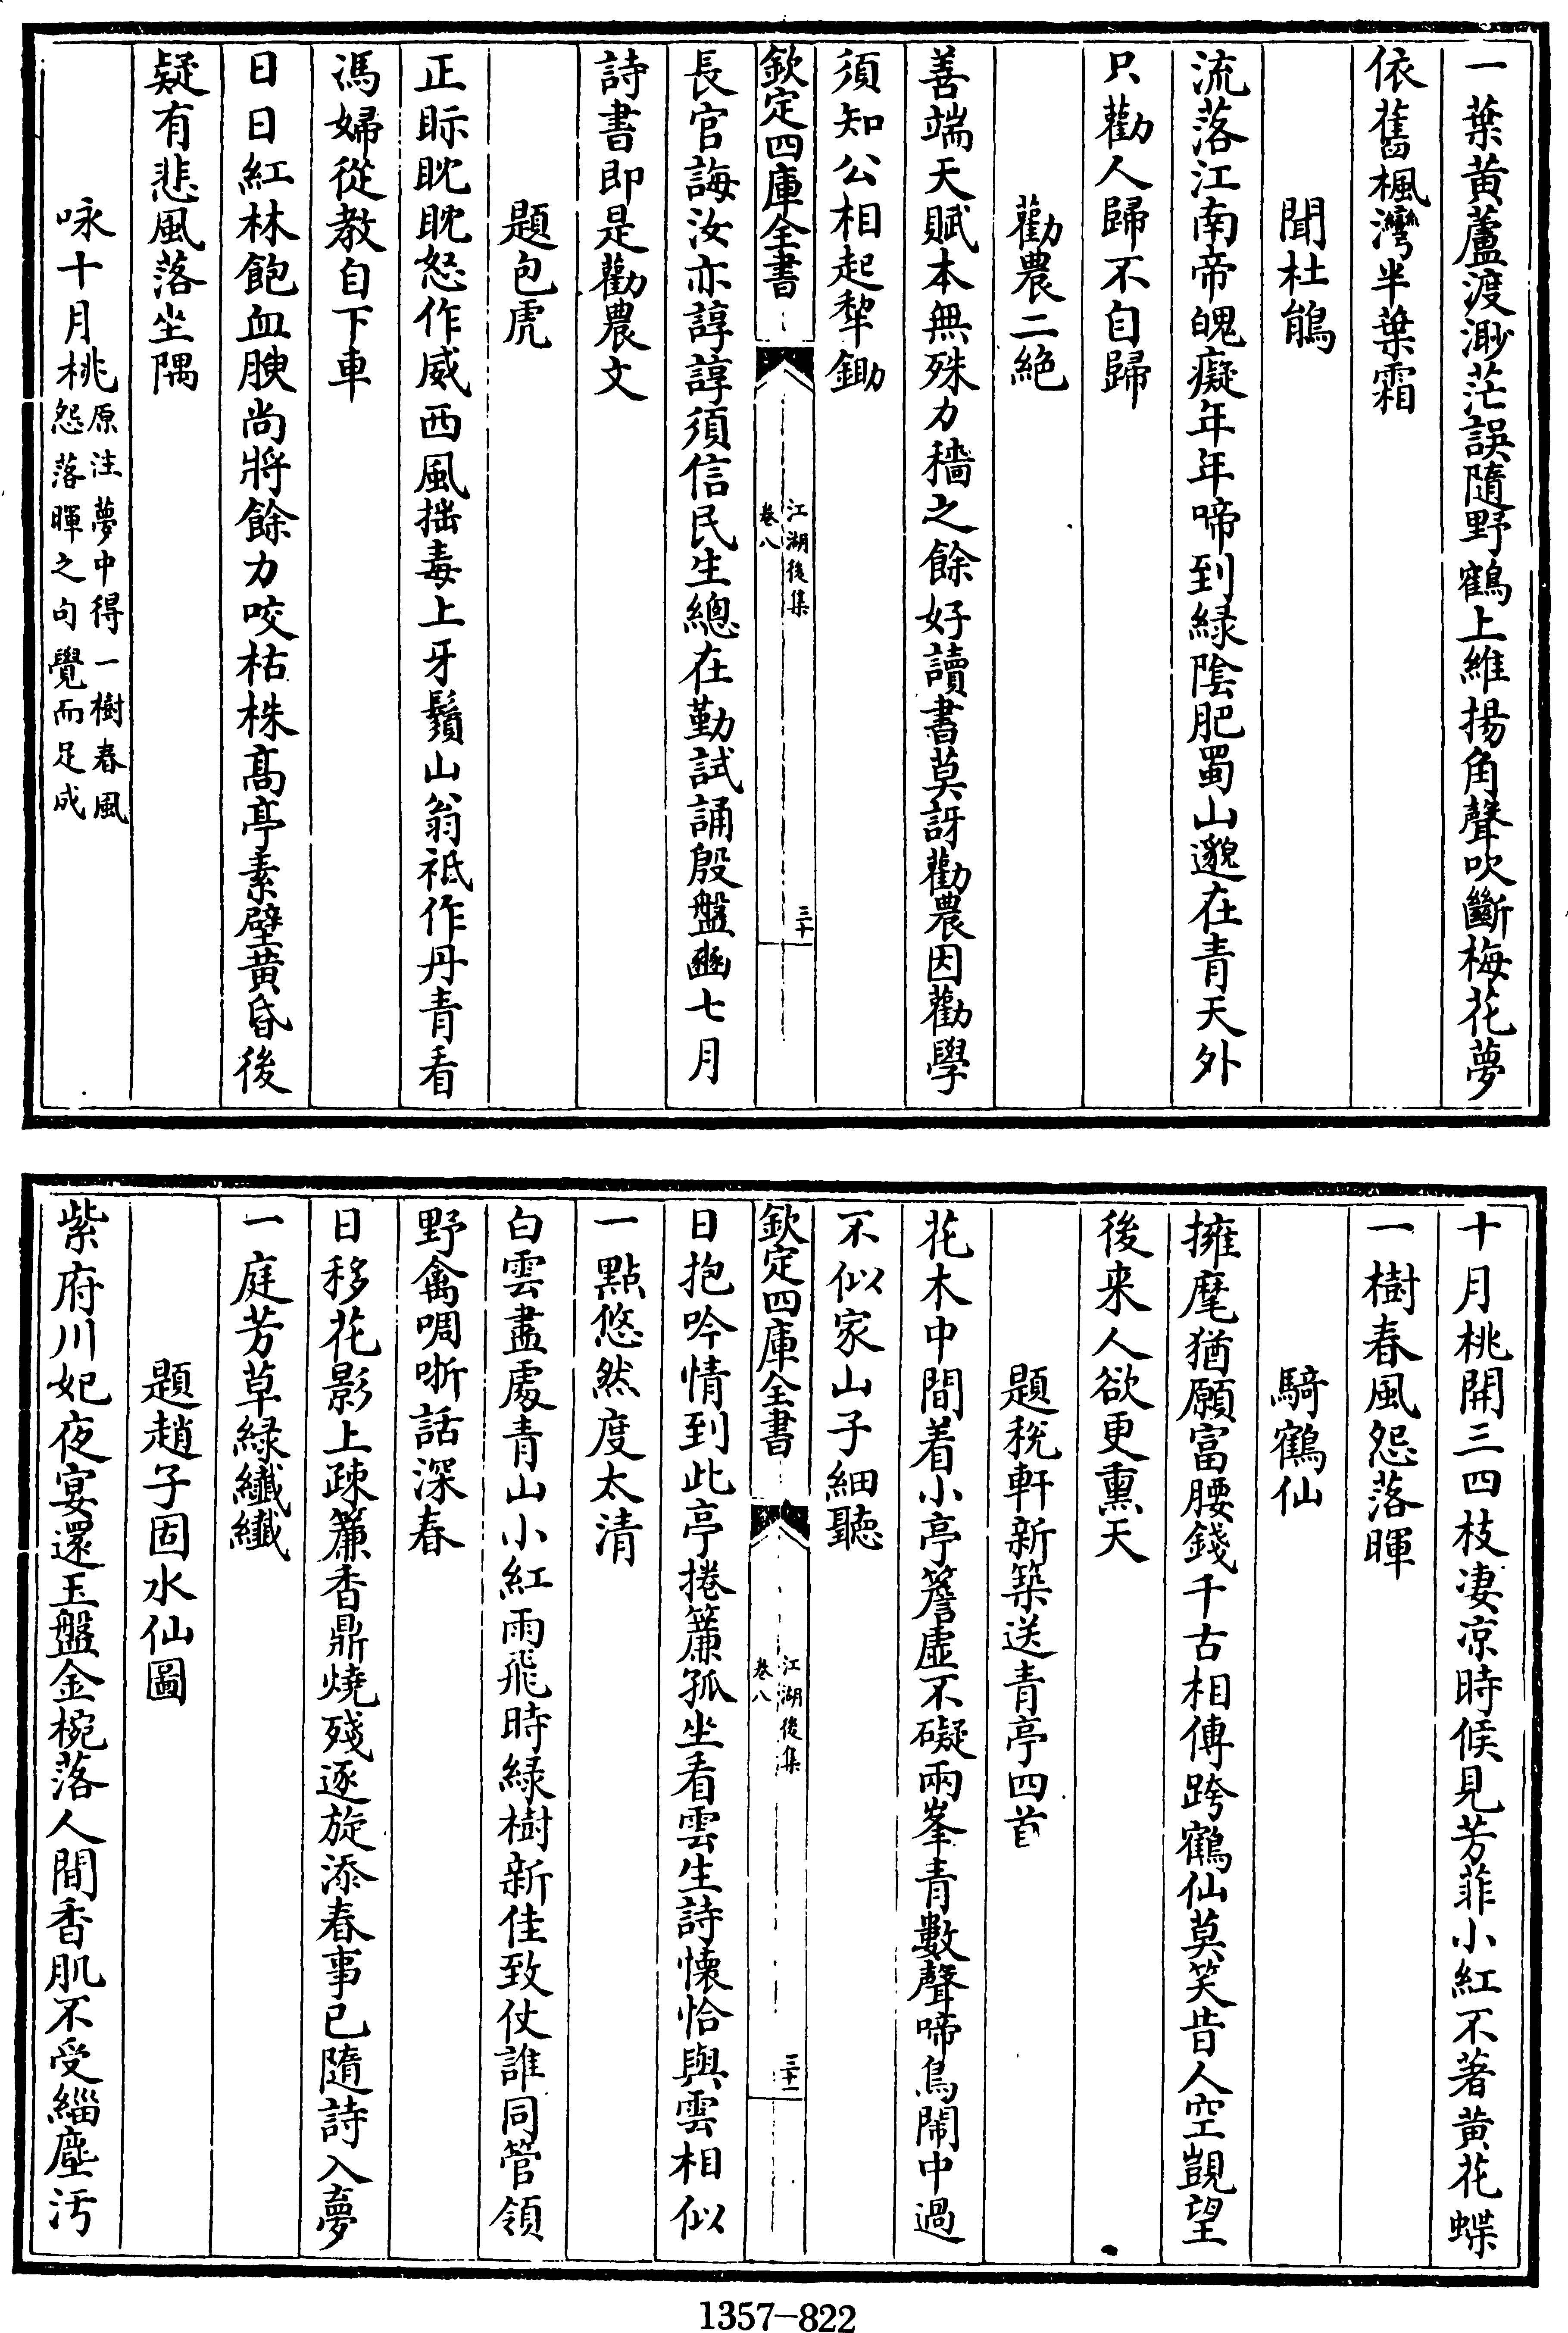 一葉黄蘆渡渺茫誤隨野鶴上維揚角聲吹斷梅花夢
依舊楓灣半葉霜
聞杜鵑
流落江南帝魄癡年年啼到緑陰肥蜀山邈在青天外
只勸人歸不自歸
勸農二絶
善端天賦本無殊力穡之餘好讀書莫訝勸農因勸學
須知公相起犂鋤
欽定四庫全書
江湖後集
卷八
三十
長官誨汝亦諄諄須信民生總在勤試誦殷盤豳七月
詩書即是勸農文
題包虎
正眎眈眈怒作威西風拙毒上牙鬚山翁祗作丹青看
馮婦從教自下車
日日紅林飽血腴尚將餘力咬枯株髙亭素壁黄昏後
疑有悲風落坐隅
咏十月桃原注夢中得一樹春風
怨落暉之句覺而足成
十月桃開三四枝凄凉時候見芳菲小紅不著黄花蝶
一樹春風怨落暉
騎鶴仙
擁麾猶願富腰錢千古相傅跨鶴仙莫笑昔人空覬望
後来人欲更熏天
題稅軒新築送青亭四首
花木中間着小亭簷虚不礙兩峯青數聲啼鳥閙中過
不似家山子細聽
欽定四庫全書
江湖後集
卷八
三十一
日抱吟情到此亭捲簾孤坐看雲生詩懐恰與雲相似
一點悠然度太清
白雲盡處青山小紅雨飛時緑樹新佳致仗誰同管領
野禽啁哳話深春
日移花影上疎簾香鼎燒殘逐旋添春事已隨詩入夢
一庭芳草緑纎纎
題趙子固水仙圖
紫府川妃夜宴還玉盤金椀落人間香肌不受緇塵汚
1357-822